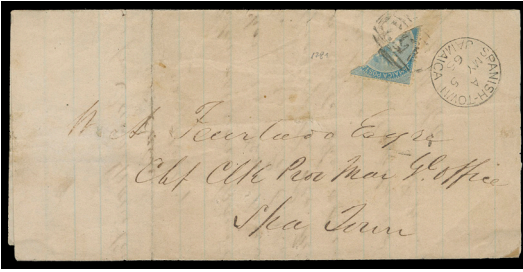 SPANISH-TOWN
JAMAICA
A
MY 5
63
W. A. Feurtado Esqre
Chf Clk Prov Mar Gl. Office
Spa Town